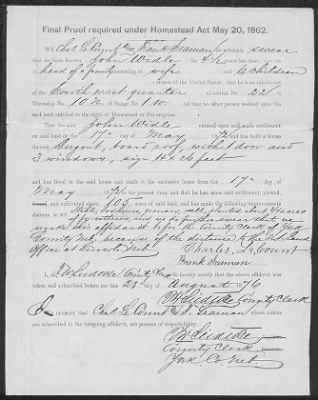 Final Proof required under Homestead Act May 20, 1862.
We, Chas G. Count Frank Freeman do solemnly swear
that we have known John Widle for 4½ years last past; that he is
a head of a family consisting of wife and 6 children
a citizen of the United States; that he is an inhabitant
of the South west quarter of section No. 22 in
Township No. 10 N. of Range No. 1 W. and that no other person resided upon the said
land entitled to the right of Homestead or Pre-emption.
That the said John Widle entered upon and made settlement
on said land on the 17th day of May, 187 and has built a house
thereon board roof, with 1 door and
3 windows, size 14 x 26 feet
and has lived in the said house and made it his exclusive home from the 17th day of
May 187 to the present time, and that he has, since said settlement, plowed,
and cultivated about 105 acres of said land, and has made the following improvements
thereon, to wit: Stable, granary, well, planted about 4 acres
of forest trees and we do further swear that we
made this affidavit before the County Clerk of York
County Neb, because of the distance to the
office at Lincoln Neb.
Charles G. Count
Frank Freeman
I, County Clerk do hereby certify that the above affidavit was
taken and subscribed before me this 23d day of
August 76
County Clerk
I do certify that Chas G. Count & F. Freeman whose names
are subscribed to the foregoing affidavit, are persons of respectability.
County Clerk
York Co Neb.